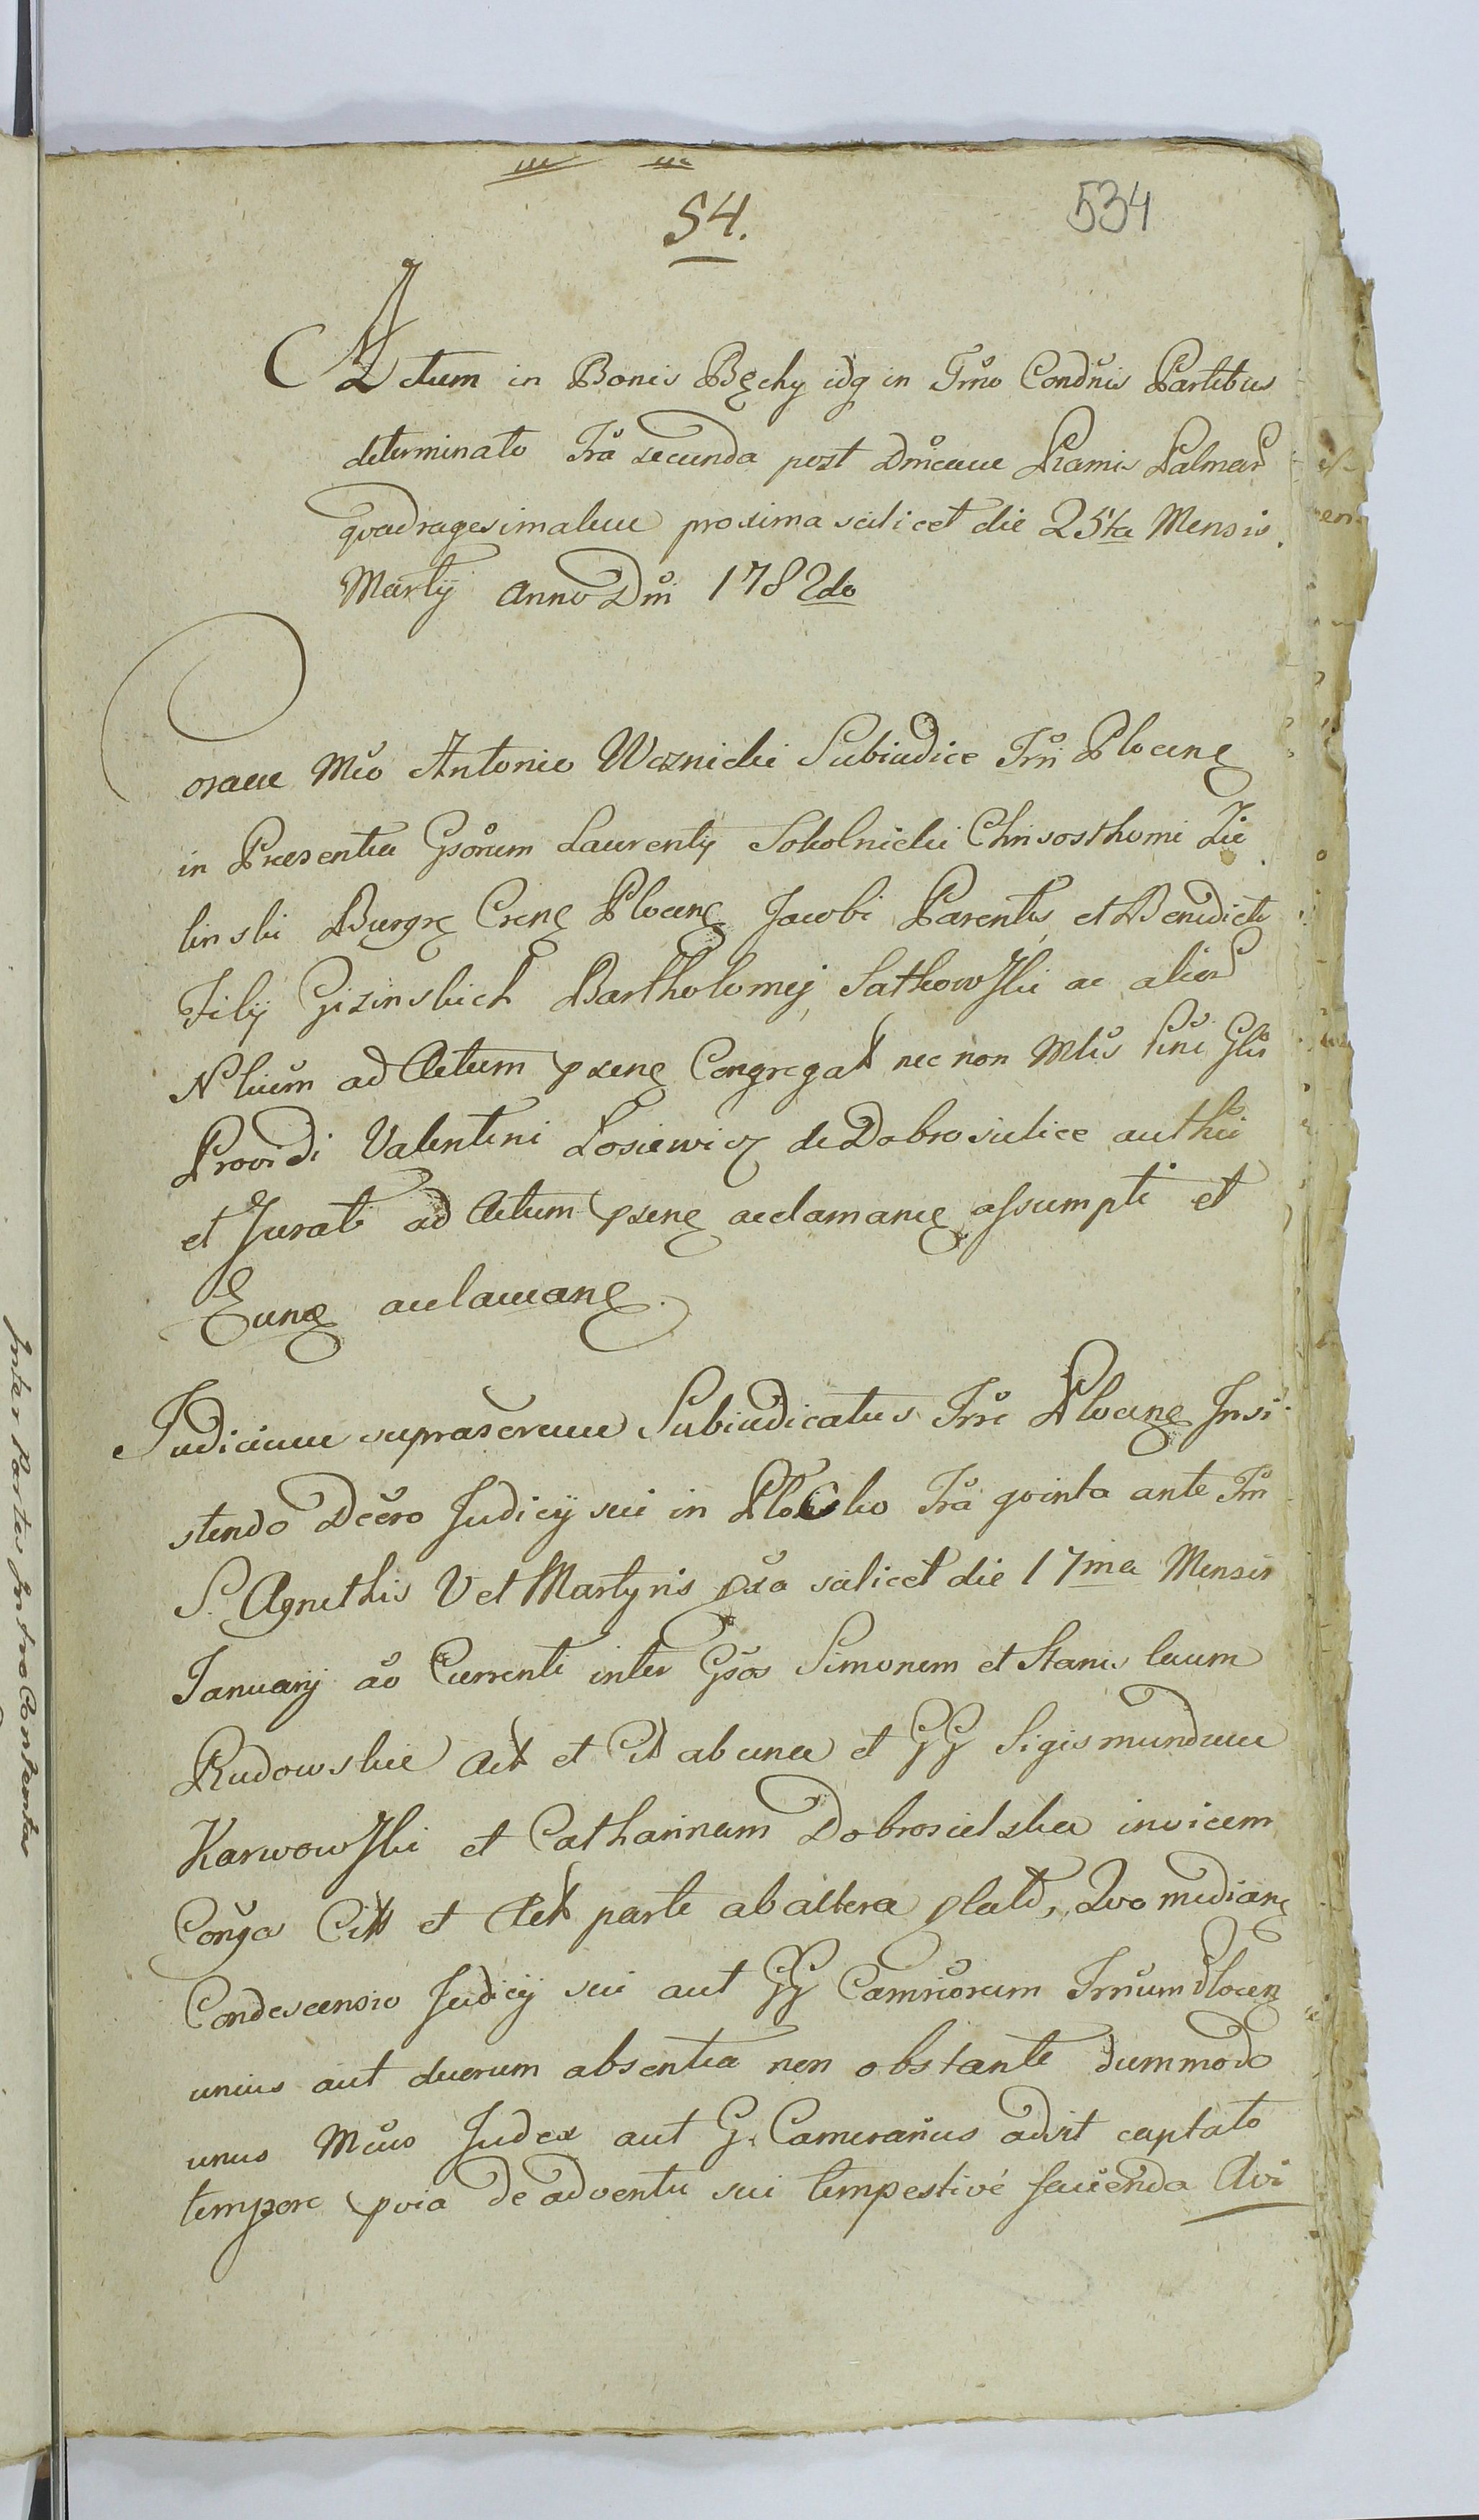 54.
534
Actum in Bonis Bęchy idq in Trno Condnis Partibus
determinato Fra secunda post Dnicam Ramis Palmar
qvadragesimalem proxima scilicet die 25ta Mensis
Martij Anno Dni 1782do
Coram Mco Antonio Woznicki Subiudice Trri Plocenę
in Praesentia Gsorum Laurentij Sokolnicki Chrisosthomi Zie
linski Burgrę Crenę Plocenę Jacobi Parentis et Benedicti
Filij Gizinskich Bartholomej Satkowski ac alior
Nlium ad Actum pxenę Congregat nec non Mtis Glis
Providi Valentini Losiewicz de Dobrosielice authci
et Jurati ad Actum pxenę acclamanę assumpti et
Eunę acclamanę.
Judicium suprascrum Subiudicatus Trre Plocenę Insi
stendo Decro Judicij sui in Plocko Fra qvinta ante Fm
S. Agnethis V et Martyris pxa scilicet die 17ma Mensis
Januarij ao Currenti inter Gsos Simonem et Stanislaum
Rudowskie Act et Cit ab una et GG Sigismundum
Karwowski et Catharinam Dobrosielska invicem
Conjga Citt et Act parte ab altera plato, Qvo medianę
Condescensio Judicij sui aut GG Camriorum Trrium Plocen
unius aut duorum absentia non obstante dummodo
unus Mcus Judex aut G. Camerarius adsit captato
tempore pvia de adventu sui tempestivé facienda Avi
Inter Partes Intro Contentas